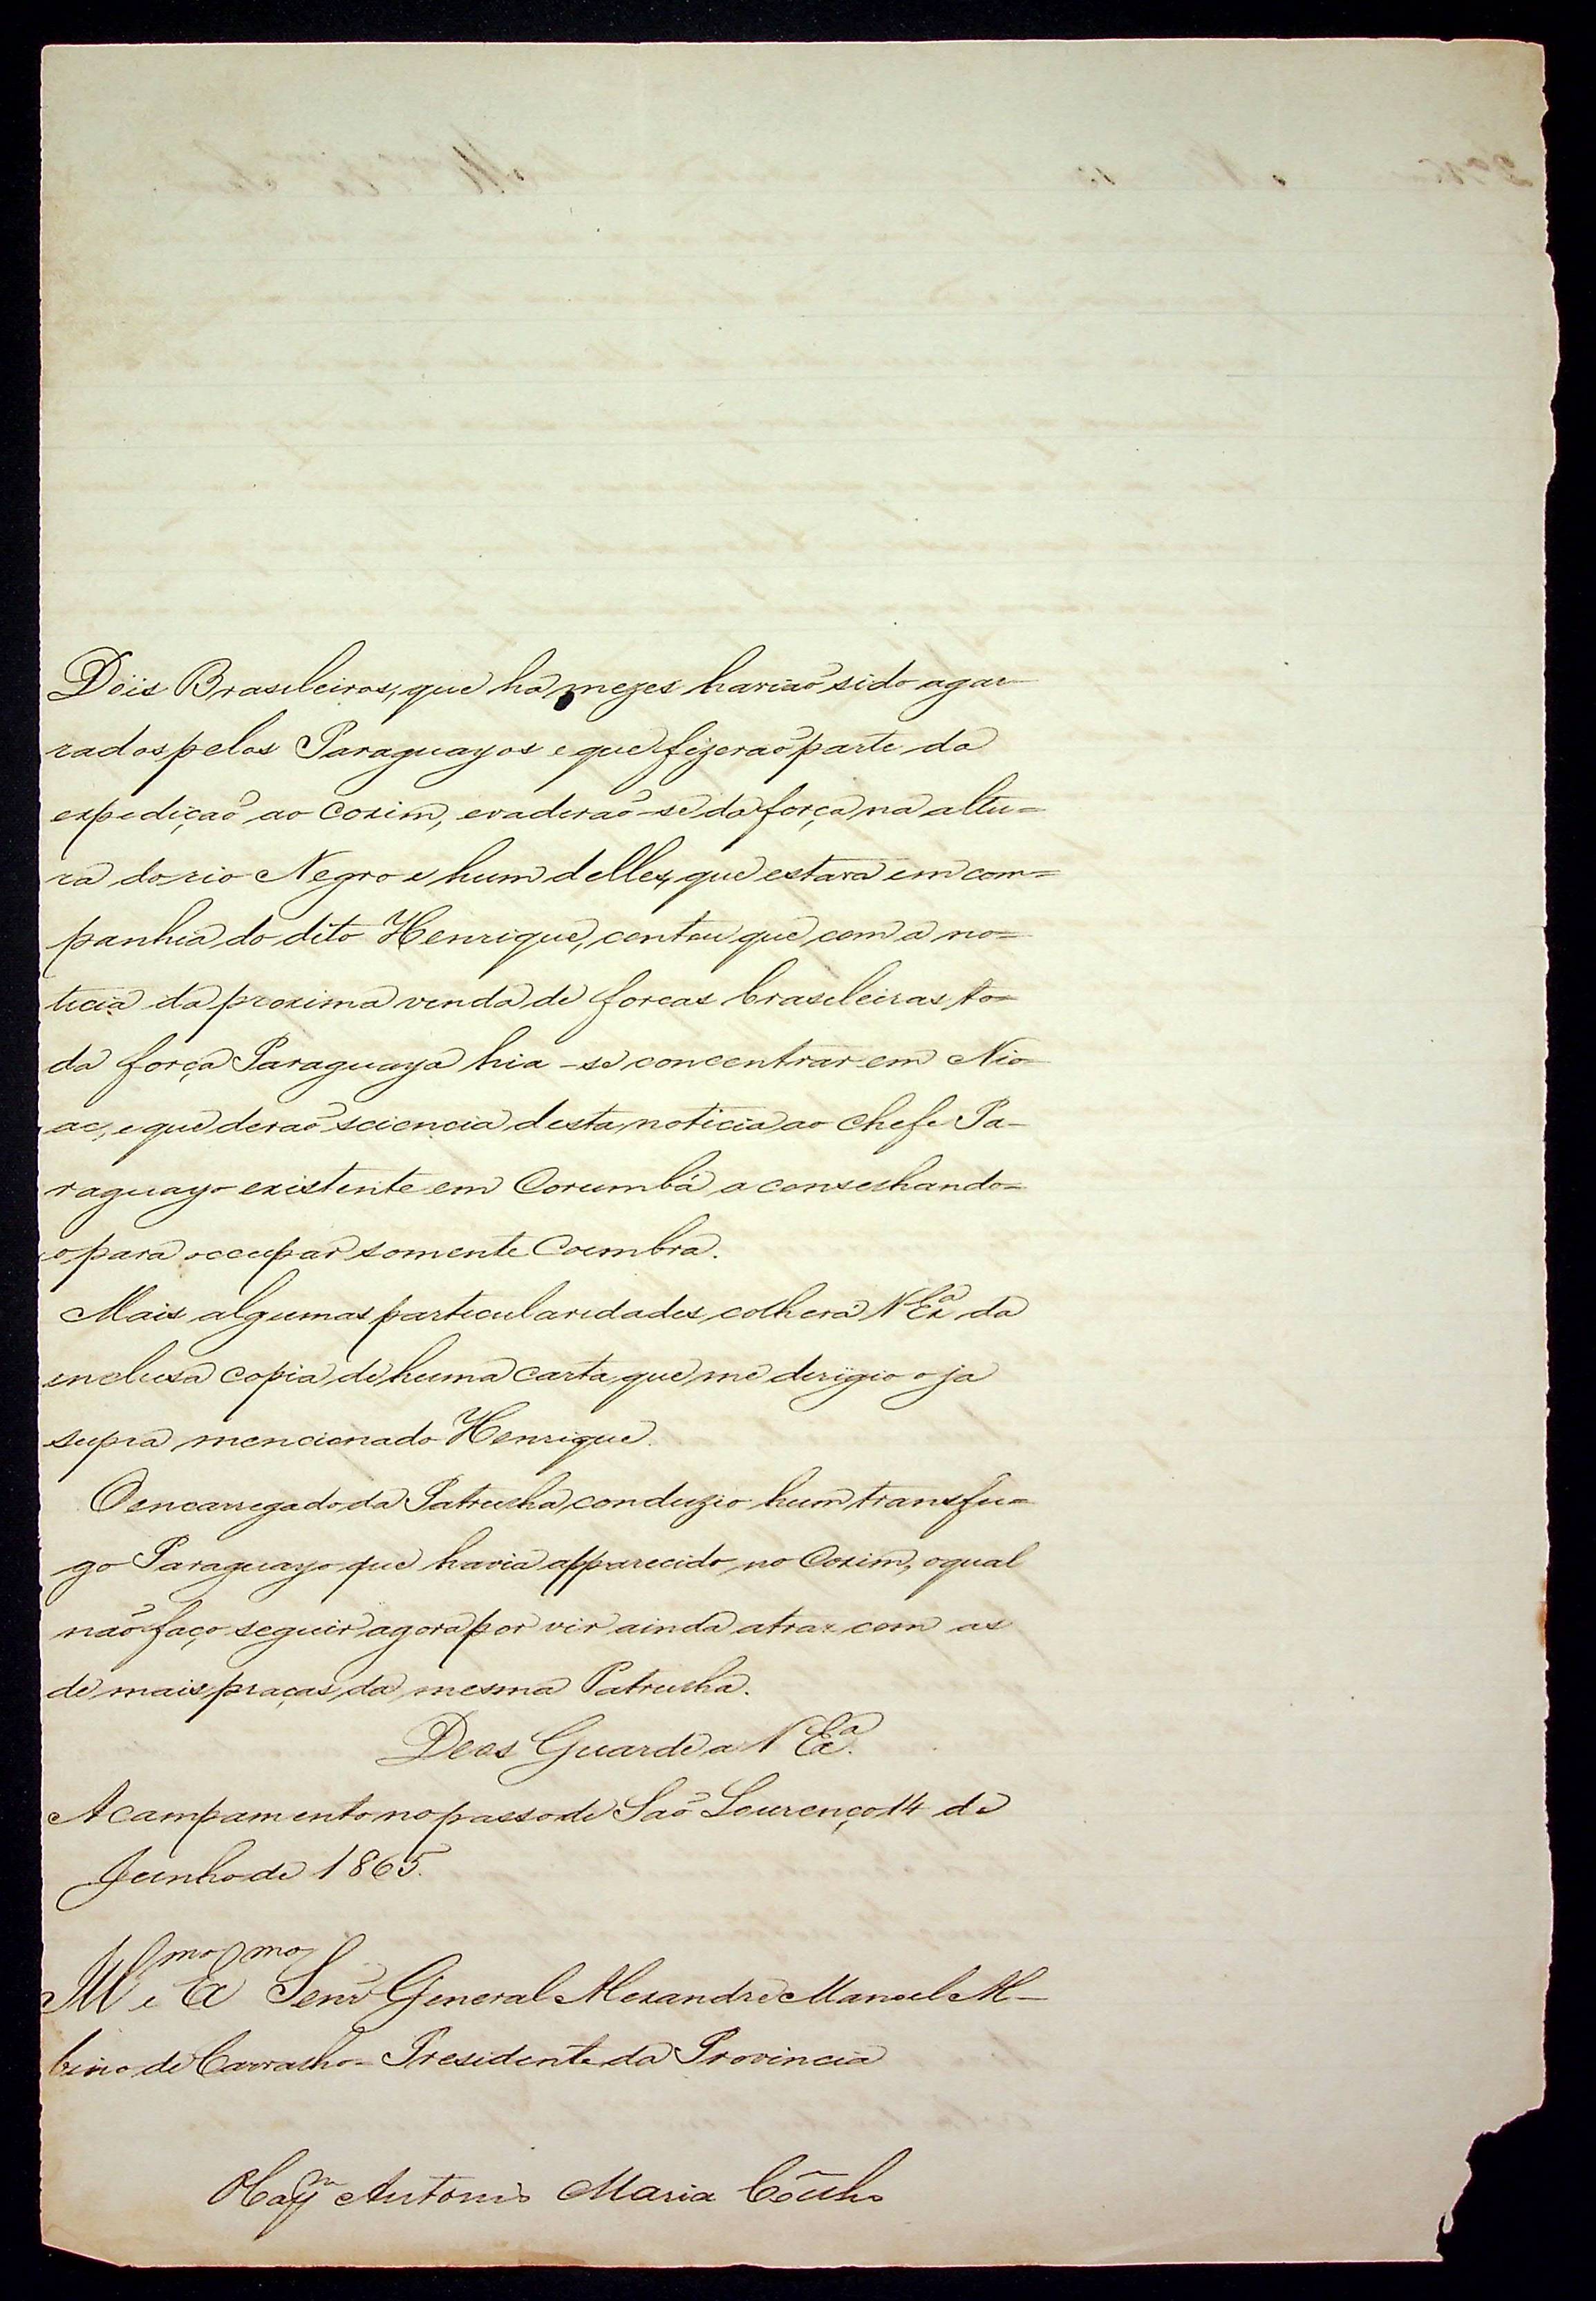 Dois Brasileiros, que há mezes haviaõ sido agar-
rados pelos Paraguayos e que fizeraõ parte da
expediçaõ ao Coxim, evaderaõ-se da força na altu=
ra do rio Negro e hum delles, que estava em com=
panhia do dito Henrique, contou que com a no=
ticia da proxima vinda de forcas brasileiras to=
da força Paraguaya hia-se concentrar em Nio-
ac, e que deraõ sciencia desta noticia ao chefe Pa-
raguayo existente em Corumbá aconselhando=
o para occupar somente Coimbra.
Mais algumas particularidades colherá V Exª da
inclusa copia de huma carta que me derigio o ja
supra mencionado Henrique.
O encarregado da Patrulha conduzio hum transfu=
go Paraguayo que havia apparecido no Coxim, o qual
naõ faço seguir agora por vir ainda atraz com as
de mais praças da mesma Patrulha.
Deos Guarde a V Exª.
Acampamento no passo de Saõ Lourenço 14 de
Junho de 1865.
Illmo e Exmo Senr General Alexandre Manoel Al-
bino de Carvalho= Presidente da Provincia
Antonio Maria Coelho